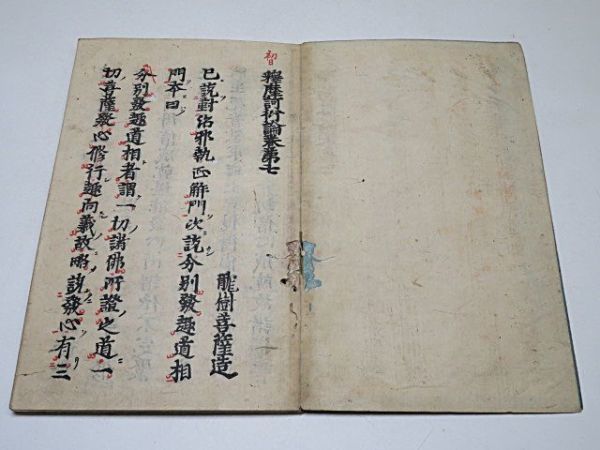 初日
釋摩訶衍論卷第七
龍樹菩薩造
已說對治邪執正解門次說分別發趣道相
門本曰
分別發趣道相者謂一切諸佛所證之道一
切菩薩發心修行趣向義故略說發心有三